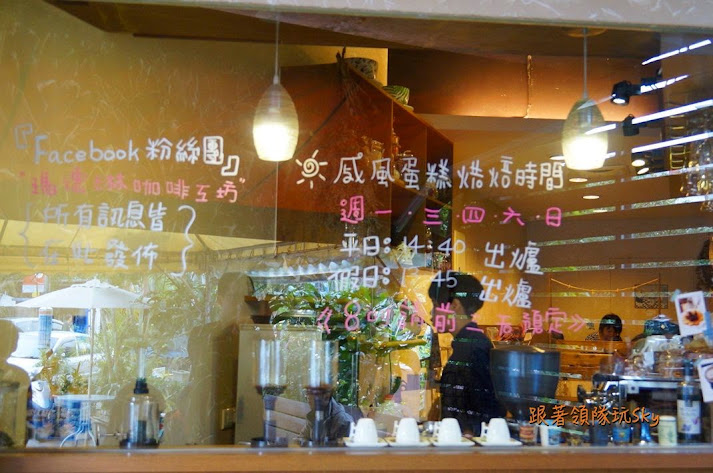 『Facebook粉絲團』
"瑪德琳咖啡工坊"
{所有訊息皆
在此發佈}
戚風蛋糕烘焙時間
週一.三.四.六.日
平日: 14:40 出爐
假日: 45 出爐
《8吋請前 預定》
跟著領隊玩Sky